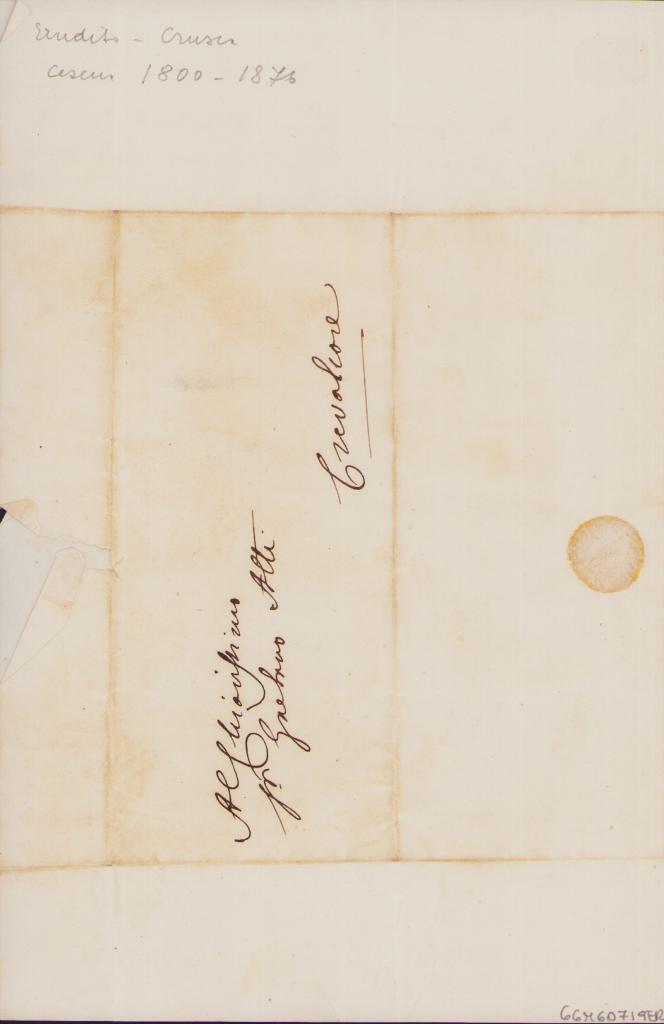 Erudito - Crusca
Cesena 1800 - 1876
Al Chiarissimo
Sr. Gaetano Atti
Crevalcore
66M60719ER